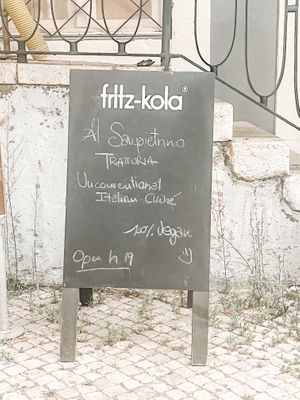 fritz-kola®
Al Sanpietrino
TRATTORIA
Unconventional
Italian
100% Vegan
Open h 19